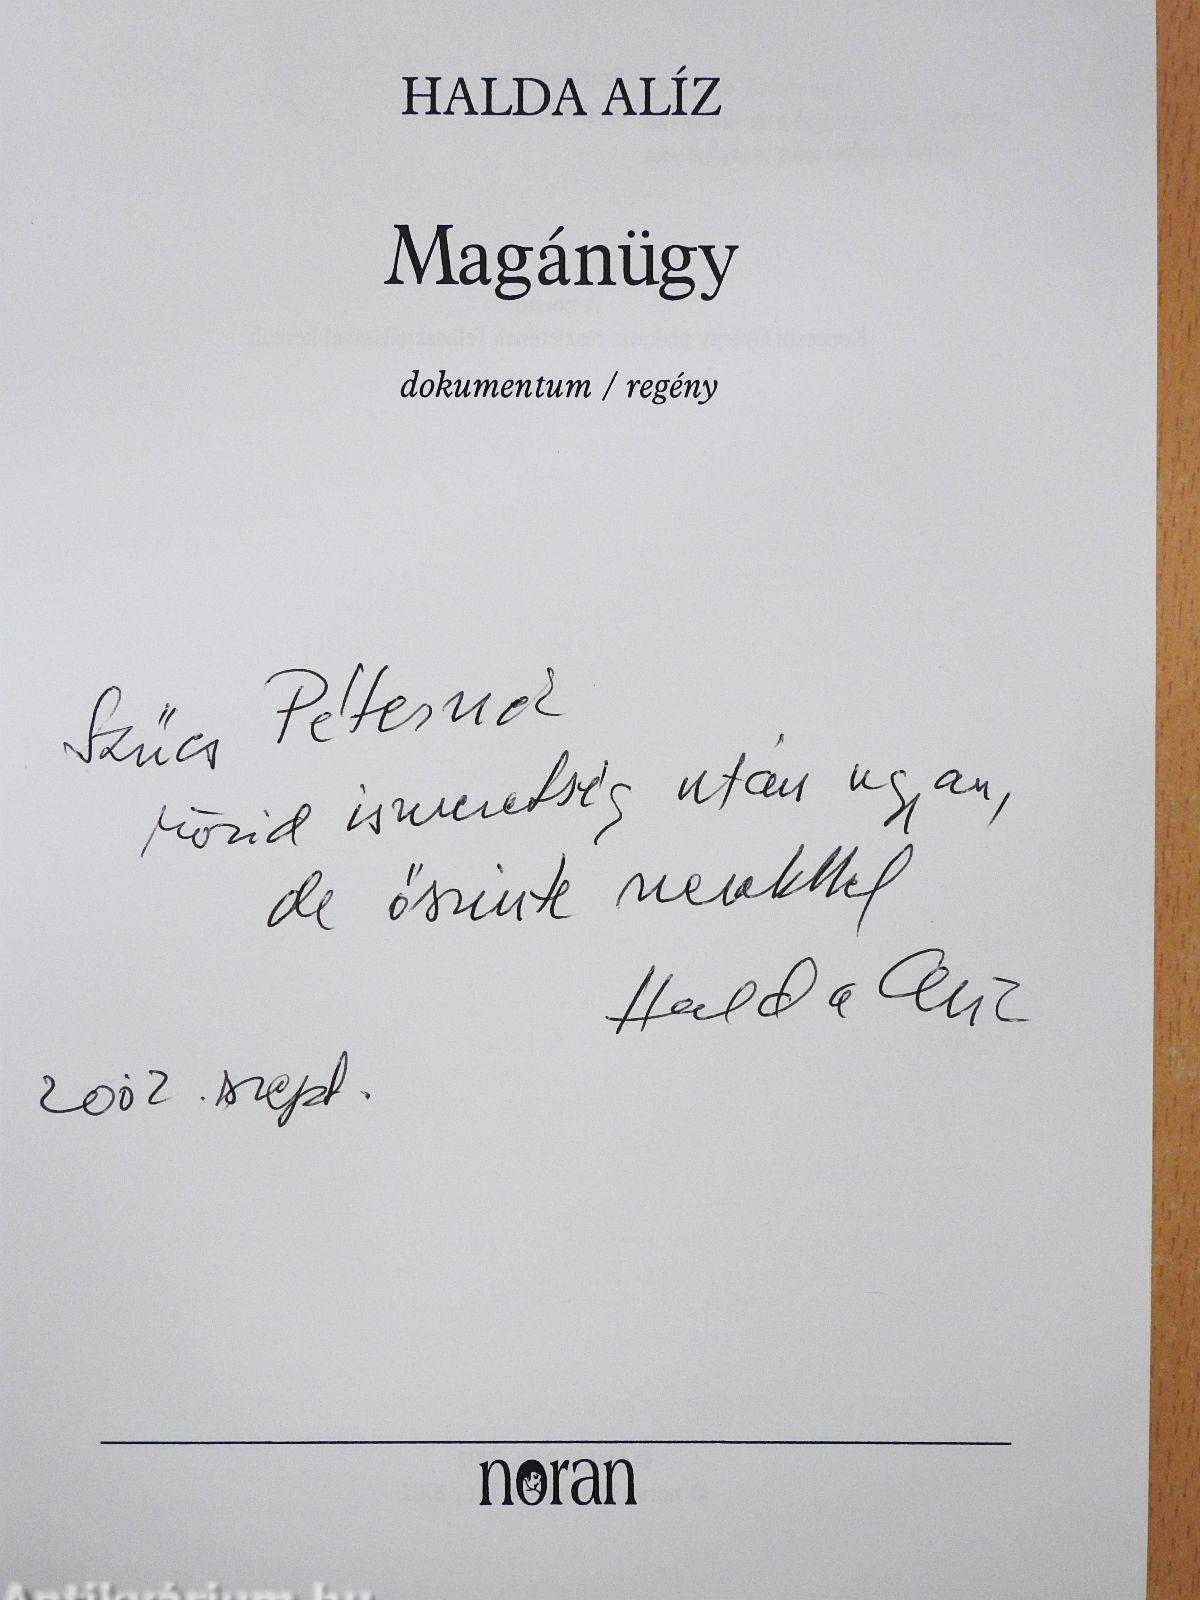 HALDA ALÍZ
Magánügy
dokumentum / regény
Szűcs Péternél
rövid ismeretség után ugyan,
de őszinte
Halda Alíz
2002. szept.
noran
Antikvárium.hu